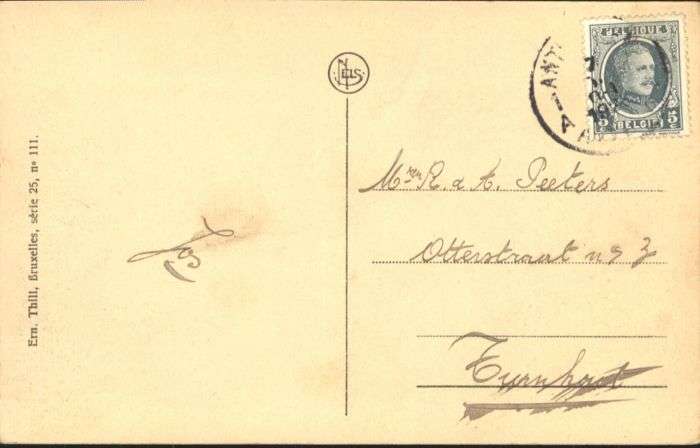 Ern. Thill, Bruxelles, série 25, nº 111.
NELS
BELGIQUE
5 5
BELGIË
ANT
Mren R. & A. Peeters
Otterstraat nº
Turnhout